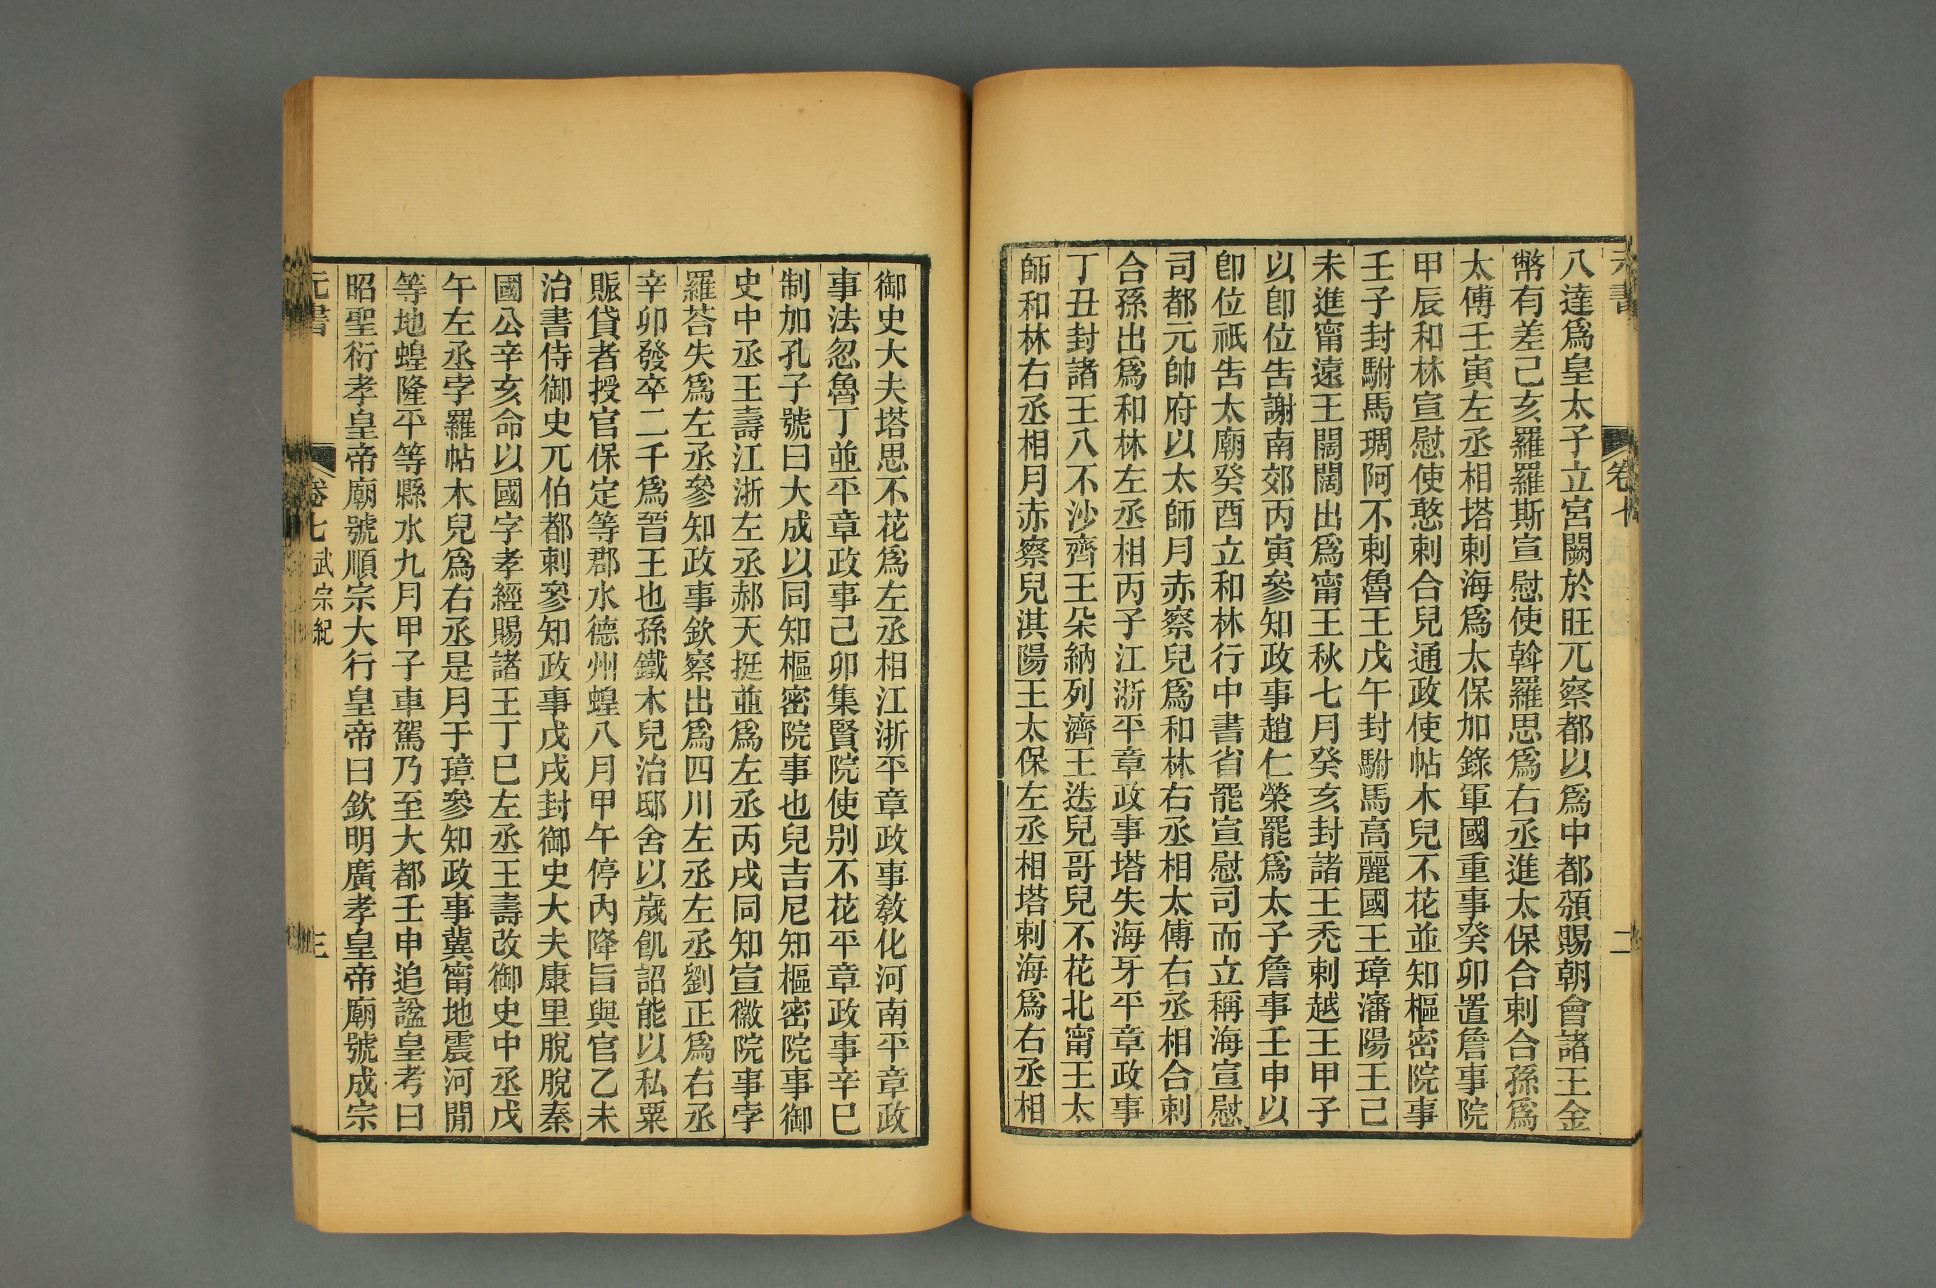 元書
卷七
二
八達爲皇太子立宮闕於旺兀察都以爲中都頒賜朝會諸王金
幣有差己亥羅羅斯宣慰使斡羅思爲右丞進太保合剌合孫爲
太傅壬寅左丞相塔剌海爲太保加錄軍國重事癸卯置詹事院
甲辰和林宣慰使憨剌合兒通政使帖木兒不花並知樞密院事
壬子封駙馬琱阿不剌魯王戊午封駙馬高麗國王璋瀋陽王己
未進甯遠王闊闊出爲甯王秋七月癸亥封諸王禿剌越王甲子
以卽位告謝南郊丙寅參知政事趙仁榮罷爲太子詹事壬申以
卽位祇告太廟癸酉立和林行中書省罷宣慰司而立稱海宣慰
司都元帥府以太師月赤察兒爲和林右丞相太傅右丞相合剌
合孫出爲和林左丞相丙子江浙平章政事塔失海牙平章政事
丁丑封諸王八不沙齊王朵納列濟王迭兒哥兒不花北甯王太
師和林右丞相月赤察兒淇陽王太保左丞相塔剌海爲右丞相
御史大夫塔思不花爲左丞相江浙平章政事敎化河南平章政
事法忽魯丁並平章政事己卯集賢院使別不花平章政事辛巳
制加孔子號曰大成以同知樞密院事也兒吉尼知樞密院事御
史中丞王壽江浙左丞郝天挺並爲左丞丙戌同知宣徽院事孛
羅荅失爲左丞參知政事欽察出爲四川左丞左丞劉正爲右丞
辛卯發卒二千爲晉王也孫鐵木兒治邸舍以歲飢詔能以私粟
賑貸者授官保定等郡水德州蝗八月甲午停內降旨與官乙未
治書侍御史兀伯都剌參知政事戊戌封御史大夫康里脫脫秦
國公辛亥命以國字孝經賜諸王丁巳左丞王壽改御史中丞戊
午左丞孛羅帖木兒爲右丞是月于璋參知政事冀甯地震河閒
等地蝗隆平等縣水九月甲子車駕乃至大都壬申追諡皇考曰
昭聖衍孝皇帝廟號順宗大行皇帝曰欽明廣孝皇帝廟號成宗
元書
卷七 武宗紀
三